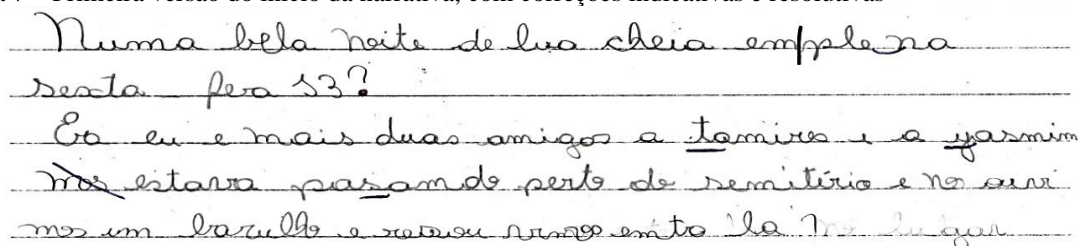 Primeira versão do início da narrativa, com correções indicativas e resolutivas
Numa bela noite de lua cheia emplena
sexta fera 13?
Ea eu e mais duas amigas a tamires e a yasmim
mos estava pasando perto do semitirio e nos ouvi
mos um barulho e vimos ento la